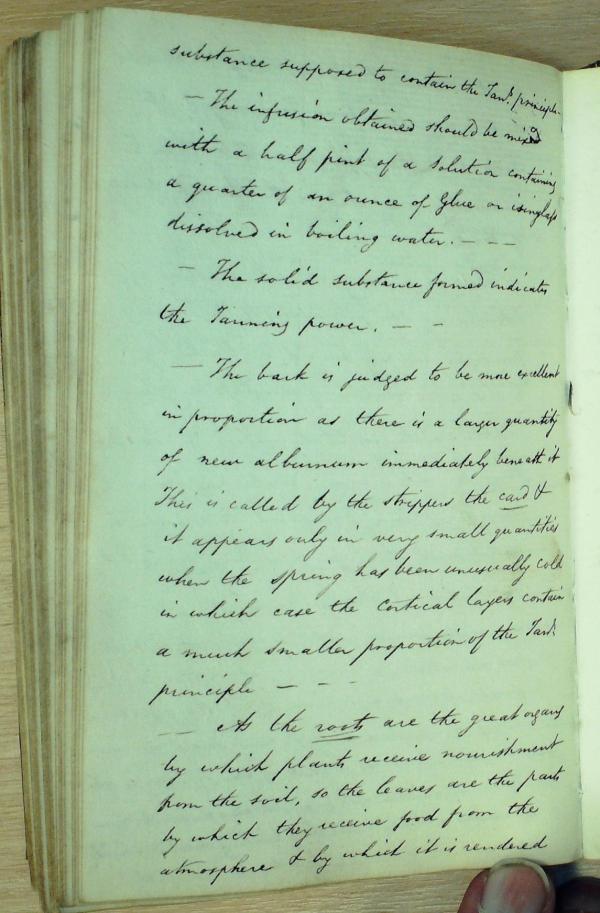 substance supposed to contain the Tan.g principle.
— The infusion obtained should be mixed
with a half pint of a solution containing
a quarter of an ounce of Glue or isinglass
dissolved in boiling water. — — —
— The solid substance formed indicates
the Tanning power. — —
— The bark is judged to be more excellent
in proportion as there is a larger quantity
of new alburnum immediately beneath it
This is called by the strippers the card &
it appears only in very small quantities
when the spring has been unusually cold
in which case the cortical layers contain
a much smaller proportion of the Tan.g
principle — — —
— As the roots are the great organs
by which plants receive nourishment
from the soil, so the leaves are the parts
by which they receive food from the
atmosphere & by which it is rendered